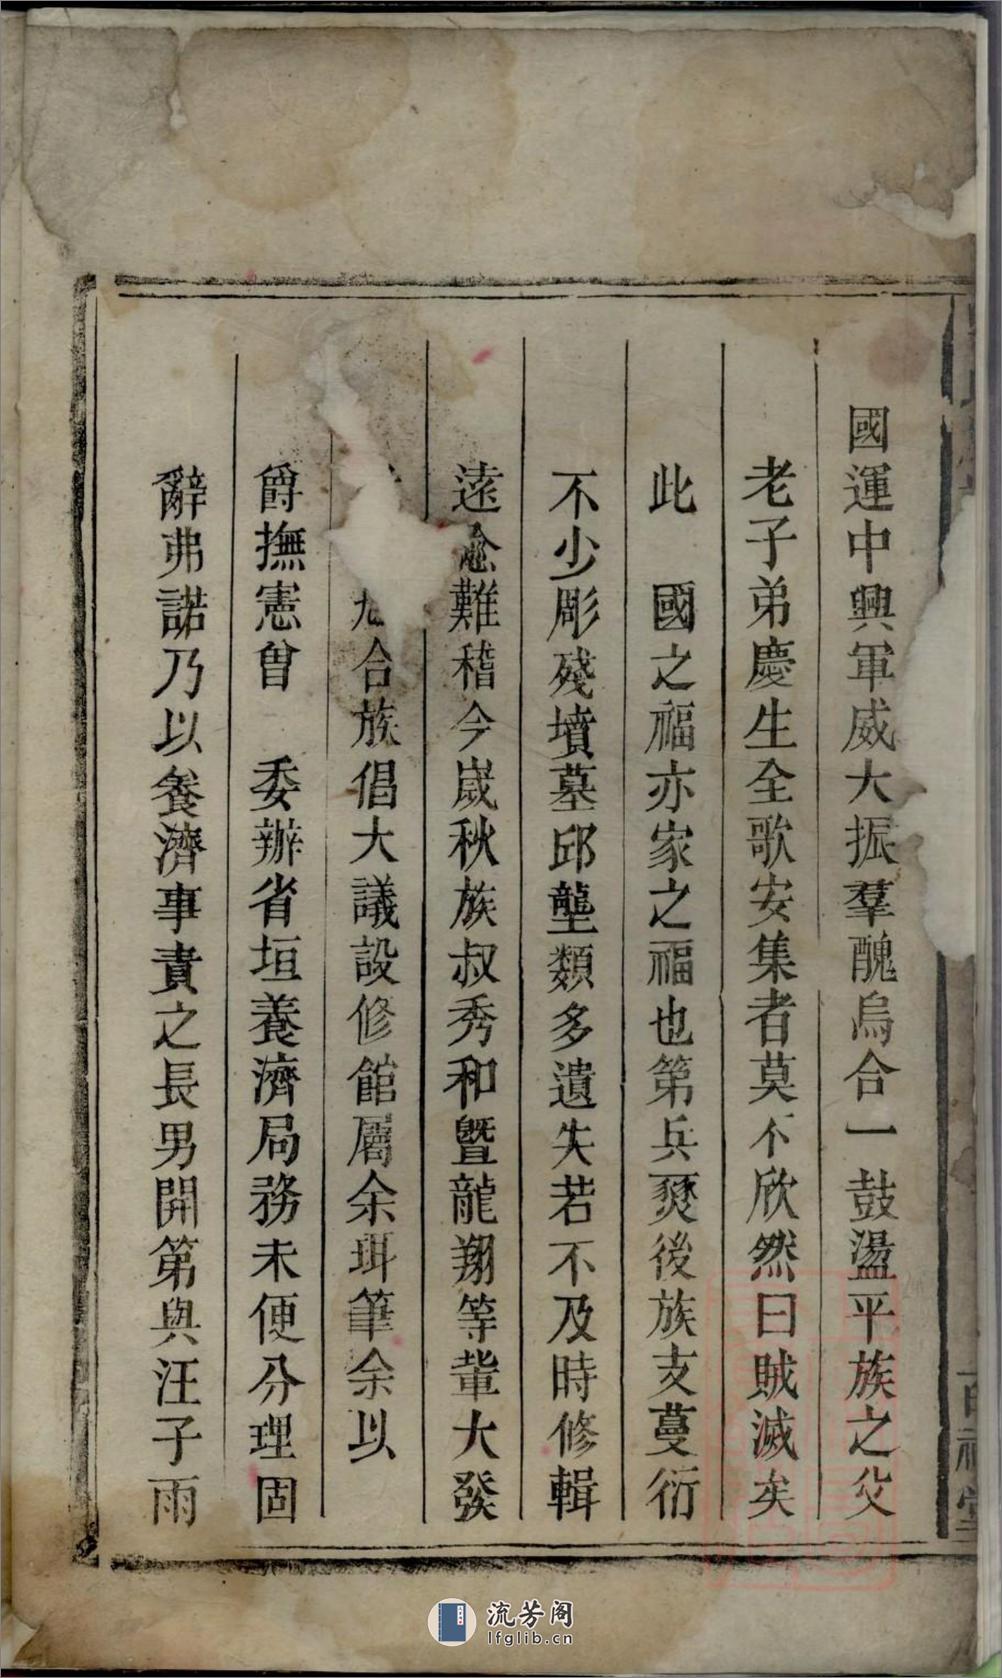 國運中興軍威大振羣醜烏合一鼓盪平族之父
老子弟慶生全歌安集者莫不欣然曰賊滅矣
此 國之福亦家之福也第兵燹後族支蔓衍
不少彫殘墳墓邱壟類多遺失若不及時修輯
遠難稽今嵗秋族叔秀和暨龍翔等輩大發
合族倡大議設修館屬余珥筆余以
爵撫憲曾 委辦省垣養濟局務未便分理固
辭弗諾乃以養濟事責之長男開第與汪子雨
流芳阁
lfglib.cn